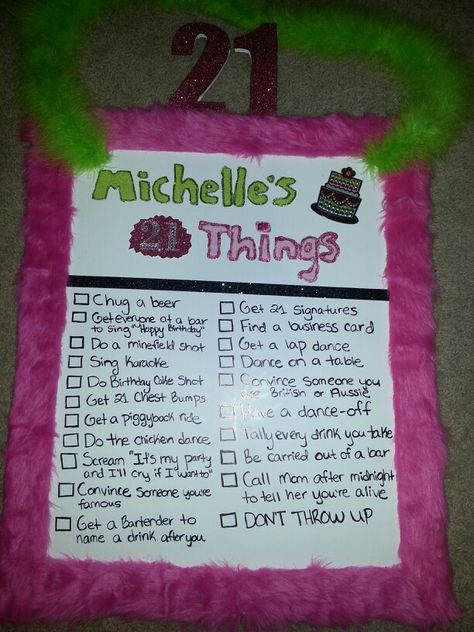 21
Michelle's
21 Things
Chug a beer
Get everyone at a bar
to sing "Happy Birthday"
Do a minefield shot
Sing Karaoke
Do Birthday Cake Shot
Get 21 Chest Bumps
Get a piggyback ride
Do the chicken dance
Scream "It's my party
and I'll cry if I want to"
Convince someone you're
famous
Get a Bartender to
name a drink after you
Get 21 Signatures
Find a business card
Get a lap dance
Dance on a table
Convince someone you
are British or Aussie
Have a dance-off
Tally every drink you take
Be carried out of a bar
Call mom after midnight
to tell her you're alive
DON'T THROW UP